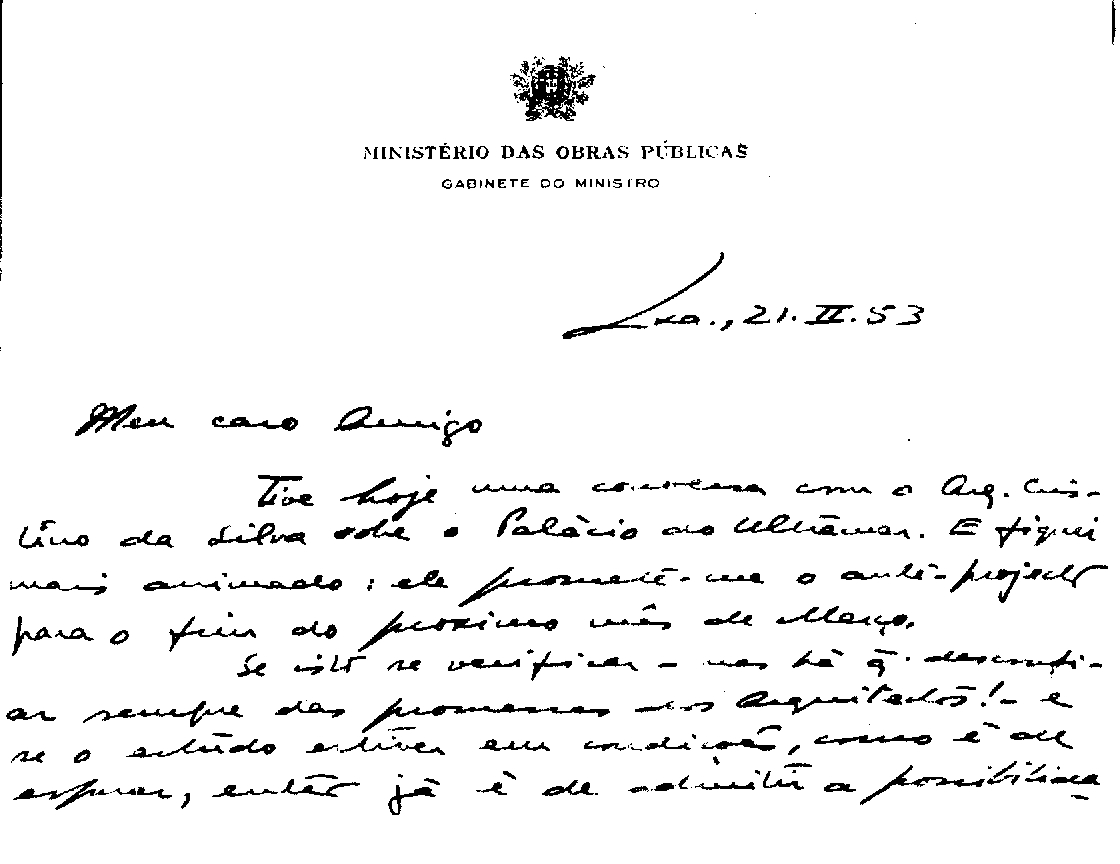 MINISTÉRIO DAS OBRAS PÚBLICAS
GABINETE DO MINISTRO
Lxa., 21.II.53
Meu caro Amigo
Tive hoje uma conversa com o Arq. Cris-
tino da Silva sobre o Palácio do Ultramar. E fiquei
mais animado: ele promete-me o ante-projecto
para o fim do proximo mês de Março.
Se isto se verificar - mas há q. desconfi-
ar sempre das promessas dos Arquitectos! - e
se o estudo estiver em condições, como é de
esperar, então já é de admitir a possibilida-